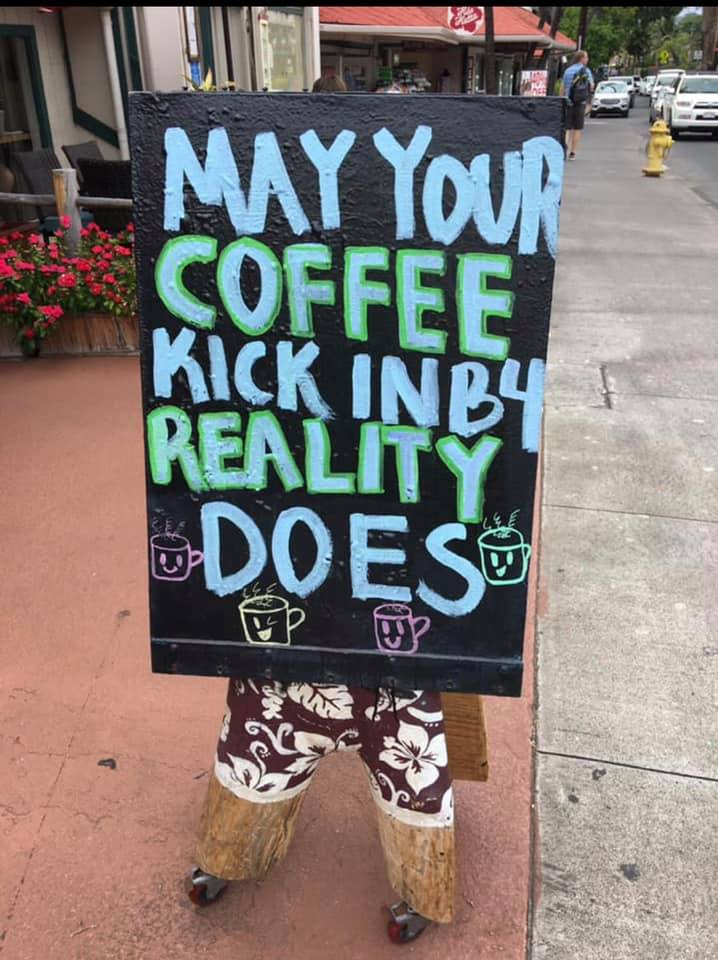 MAY YOUR
COFFEE
KICK IN B4
REALITY
DOES